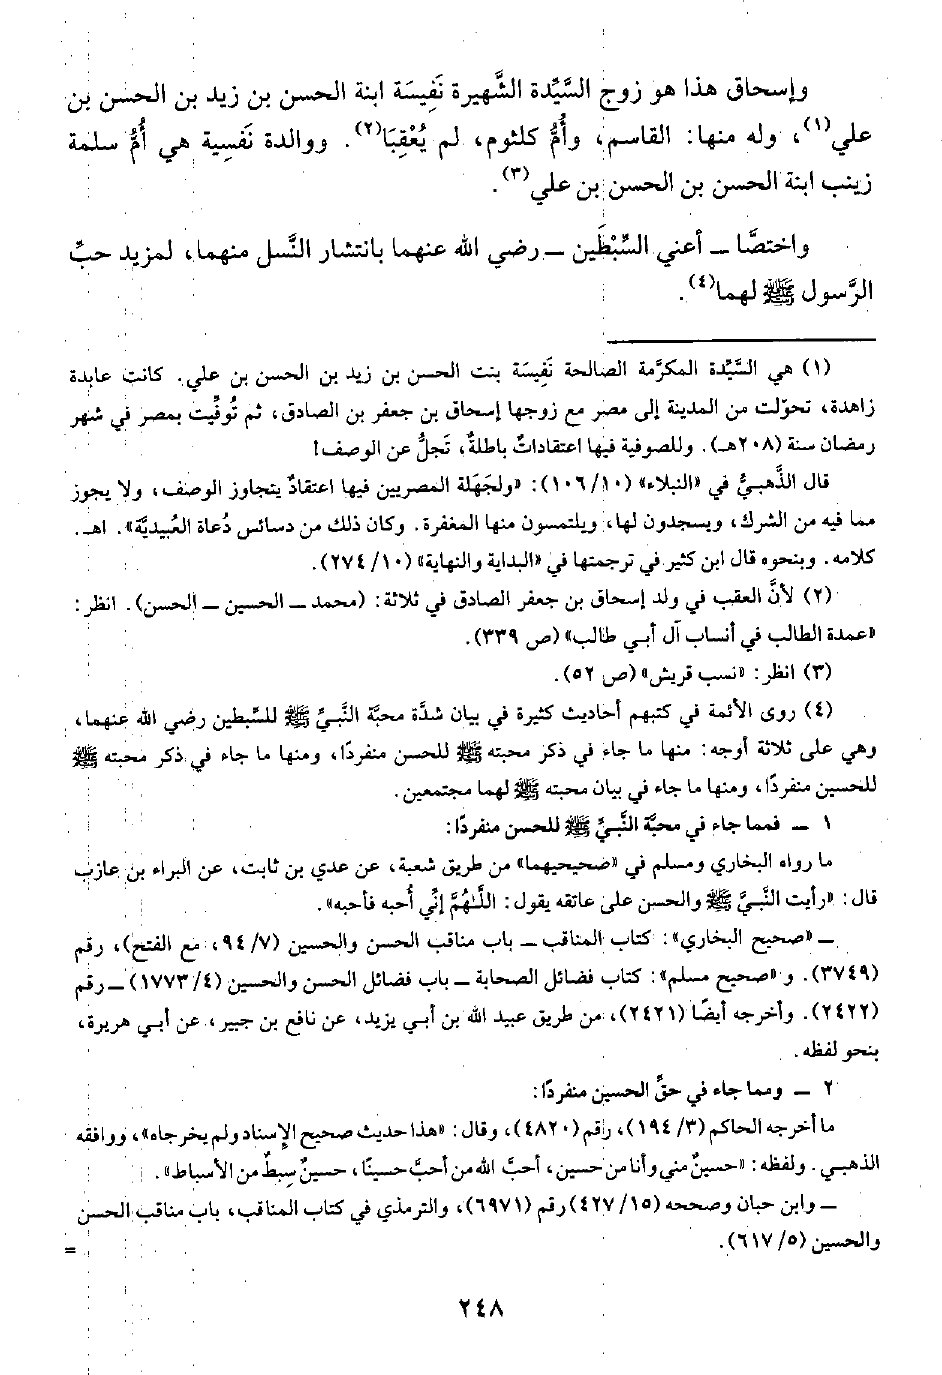 وإسحاق هذا هو زوج السَّيِّدة الشَّهيرة نَفِيسَة ابنة الحسن بن زيد بن الحسن بن
علي(١)، وله منها: القاسم، وأُمُّ كلثوم، لم يُعْقِبَا(٢). ووالدة نَفسِية هي أُمُّ سلمة
زينب ابنة الحسن بن الحسن بن علي(٣).
واختصَّا ــ أعني السِّبْطَين ــ رضي الله عنهما بانتشار النَّسل منهما، لمزيد حبِّ
الرَّسول ﷺ لهما(٤).
(١) هي السَّيِّدة المكرَّمة الصالحة نَفِيسَة بنت الحسن بن زيد بن الحسن بن علي. كانت عابدة
زاهدة، تحوّلت من المدينة إلى مصر مع زوجها إسحاق بن جعفر بن الصادق، ثم تُوفِّيت بمصر في شهر
رمضان سنة (٢٠٨هـ). وللصوفية فيها اعتقاداتٌ باطلةٌ، تَجلُّ عن الوصف!
قال الذَّهبيُّ في «النبلاء» (١٠٦/١٠): «ولجَهَلة المصريين فيها اعتقادٌ يتجاوز الوصف، ولا يجوز
مما فيه من الشرك، ويسجدون لها، ويلتمسون منها المغفرة. وكان ذلك من دسائس دُعاة العُبيديَّة». اهـ.
كلامه. وبنحوه قال ابن كثير في ترجمتها في «البداية والنهاية» (١٠/ ٢٧٤).
(٢) لأنَّ العقب في ولد إسحاق بن جعفر الصادق في ثلاثة: (محمد ــ الحسين ــ الحسن). انظر:
«عمدة الطالب في أنساب آل أبي طالب» (ص ٣٣٩).
(٣) انظر: «نسب قريش» (ص ٥٢).
(٤) روى الأئمة في كتبهم أحاديث كثيرة في بيان شدَّة محبَّة النَّبيِّ ﷺ للسِّبطين رضي الله عنهما،
وهي على ثلاثة أوجه: منها ما جاء في ذكر محبته ﷺ للحسن منفردًا، ومنها ما جاء في ذكر محبته ﷺ
للحسين منفردًا، ومنها ما جاء في بيان محبته ﷺ لهما مجتمعين.
١ ــ فمما جاء في محبَّة النَّبيِّ ﷺ للحسن منفردًا:
ما رواه البخاري ومسلم في «صحيحيهما» من طريق شعبة، عن عدي بن ثابت، عن البراء بن عازب
قال: «رأيت النَّبيَّ ﷺ والحسن على عاتقه يقول: اللَّهُمَّ إنِّي أُحبه فأحبه».
ــ «صحيح البخاري»: كتاب المناقب ــ باب مناقب الحسن والحسين (٧/ ٩٤، مع الفتح)، رقم
(٣٧٤٩). و «صحيح مسلم»: كتاب فضائل الصحابة ــ باب فضائل الحسن والحسين (٤/ ١٧٧٣) ــ رقم
(٢٤٢٢). وأخرجه أيضًا (٢٤٢١)، من طريق عبيد الله بن أبي يزيد، عن نافع بن جبير، عن أبي هريرة،
بنحو لفظه.
٢ ــ ومما جاء في حقِّ الحسين منفردًا:
ما أخرجه الحاكم (٣/ ١٩٤)، رقم (٤٨٢٠)، وقال: «هذا حديث صحيح الإسناد ولم يخرجاه»، ووافقه
الذهبي. ولفظه: «حسينٌ مني وأنا من حسين، أحبَّ الله من أحبَّ حسينًا، حسينٌ سِبطٌ من الأسباط».
ــ وابن حبان وصححه (١٥/ ٤٢٧) رقم (٦٩٧١)، والترمذي في كتاب المناقب، باب مناقب الحسن
والحسين (٥/ ٦١٧).
=
٢٤٨